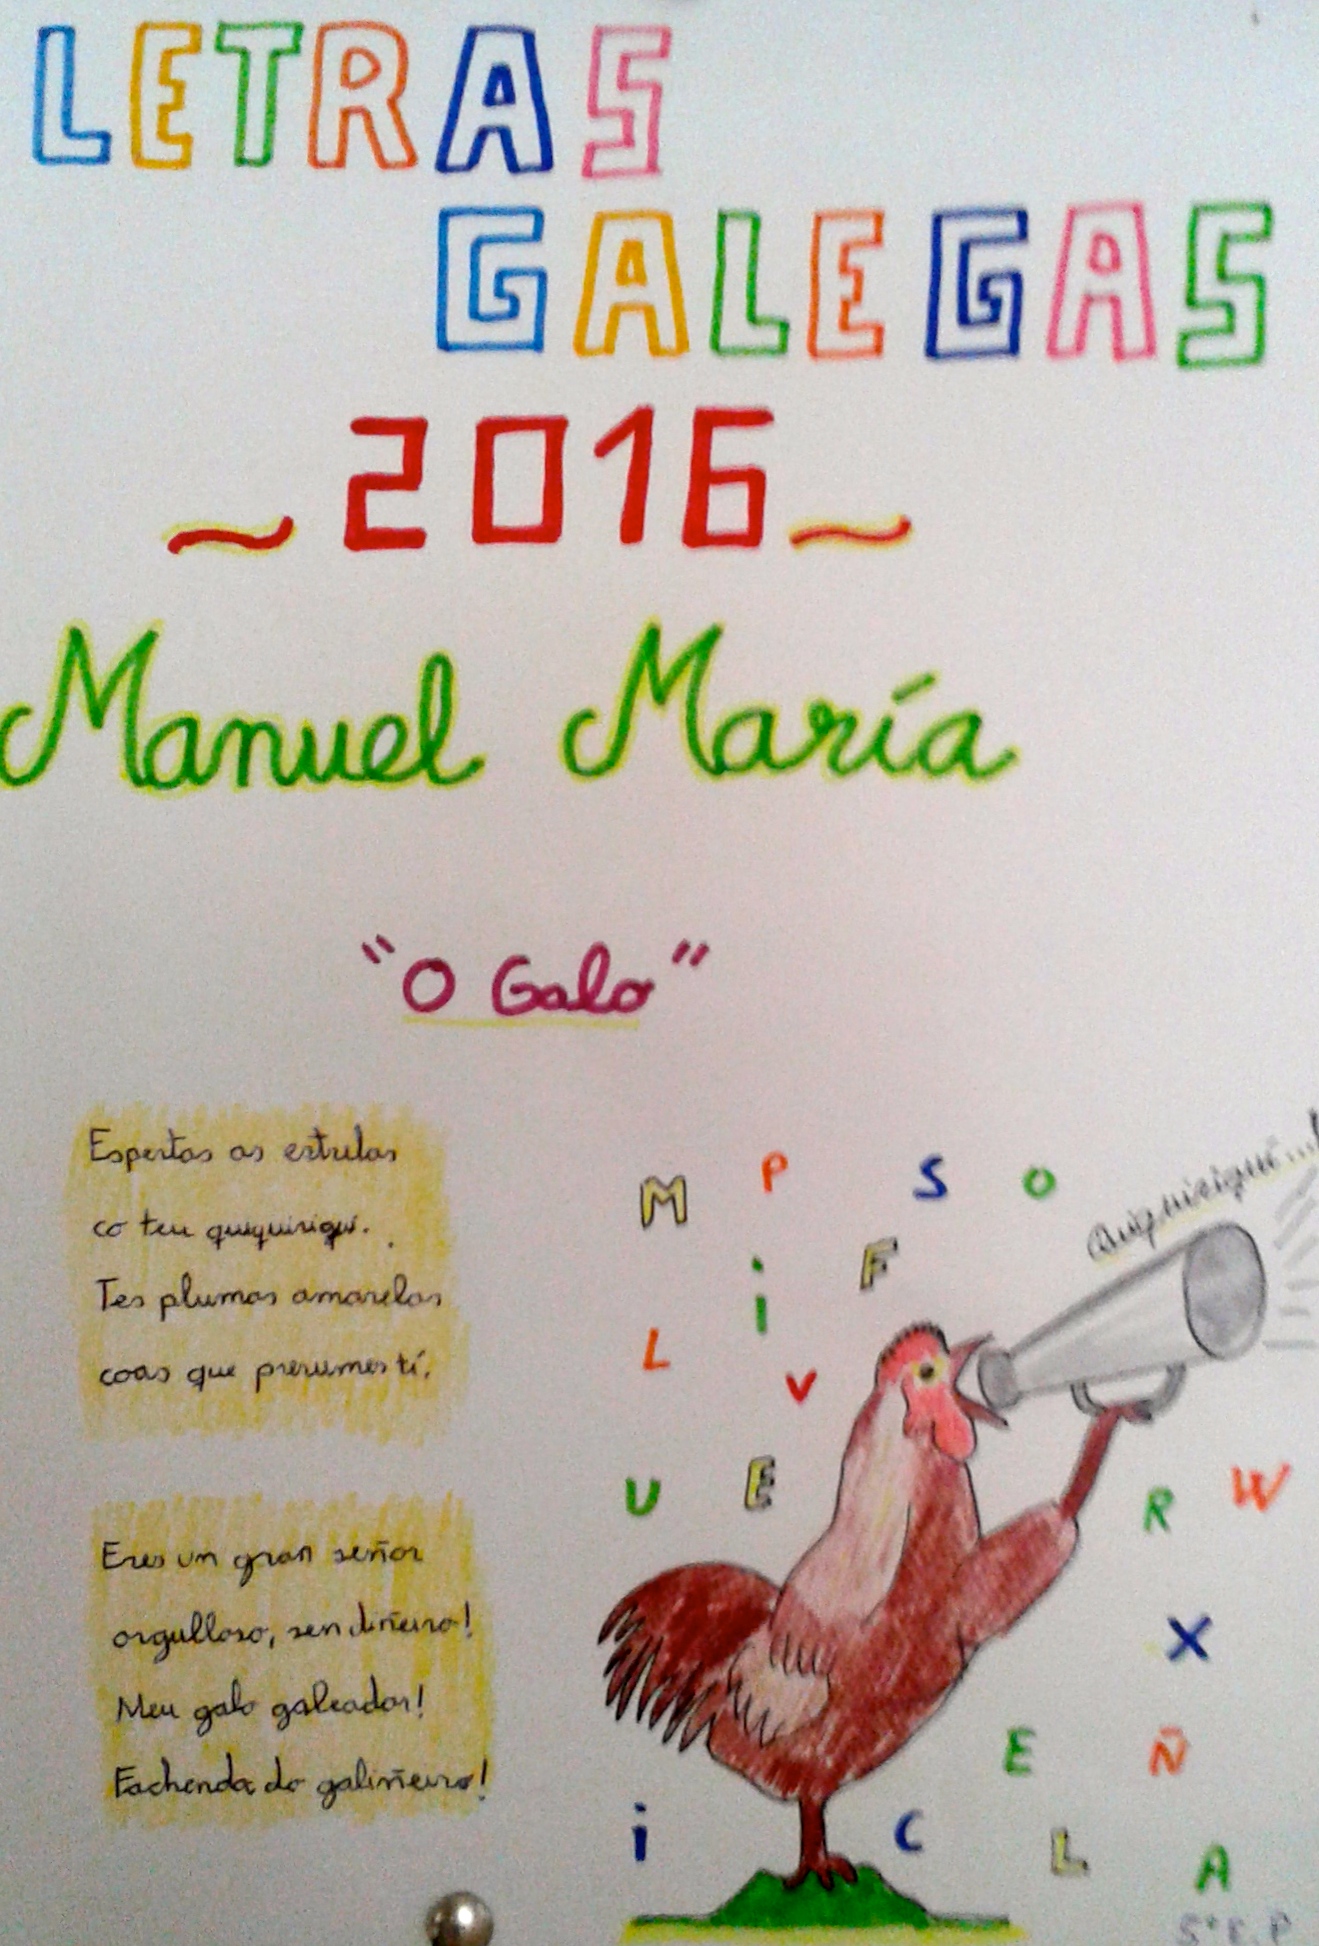 LETRAS
GALEGAS
~2016~
Manuel María
"O Galo"
Espertas as estrelas
co teu quiquiriquí.
Tes plumas amarelas
coas que presumes tí.
Eres un gran señor
orgulloso, sen diñeiro!
Meu galo galeador!
Fachenda do galiñeiro!
Quiquiriquí...!
M P S O
i F
L V
U E R W
X
E Ñ
i C L A
5º E.P